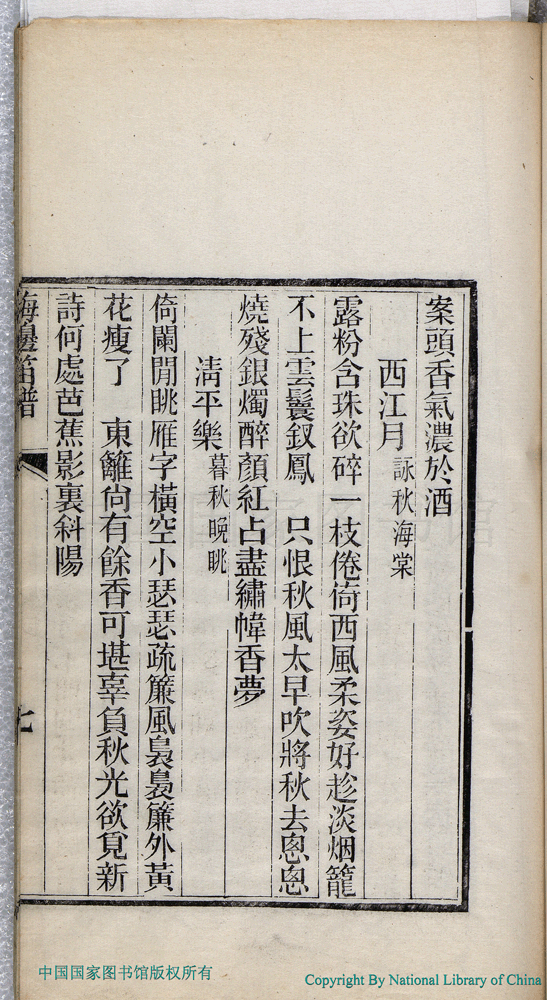 案頭香氣濃於酒
西江月 詠秋海棠
露粉含珠欲碎一枝倦倚西風柔姿好趁淡烟籠
不上雲鬟釵鳳　只恨秋風太早吹將秋去悤悤
燒殘銀燭醉顏紅占盡繡幃香夢
淸平樂 暮秋晚眺
倚闌閒眺雁字橫空小瑟瑟疏簾風裊裊簾外黃
花瘦了　東籬尙有餘香可堪辜負秋光欲覓新
詩何處芭蕉影裏斜陽
海邊笛譜
七
中国国家图书馆版权所有
Copyright By National Library of China